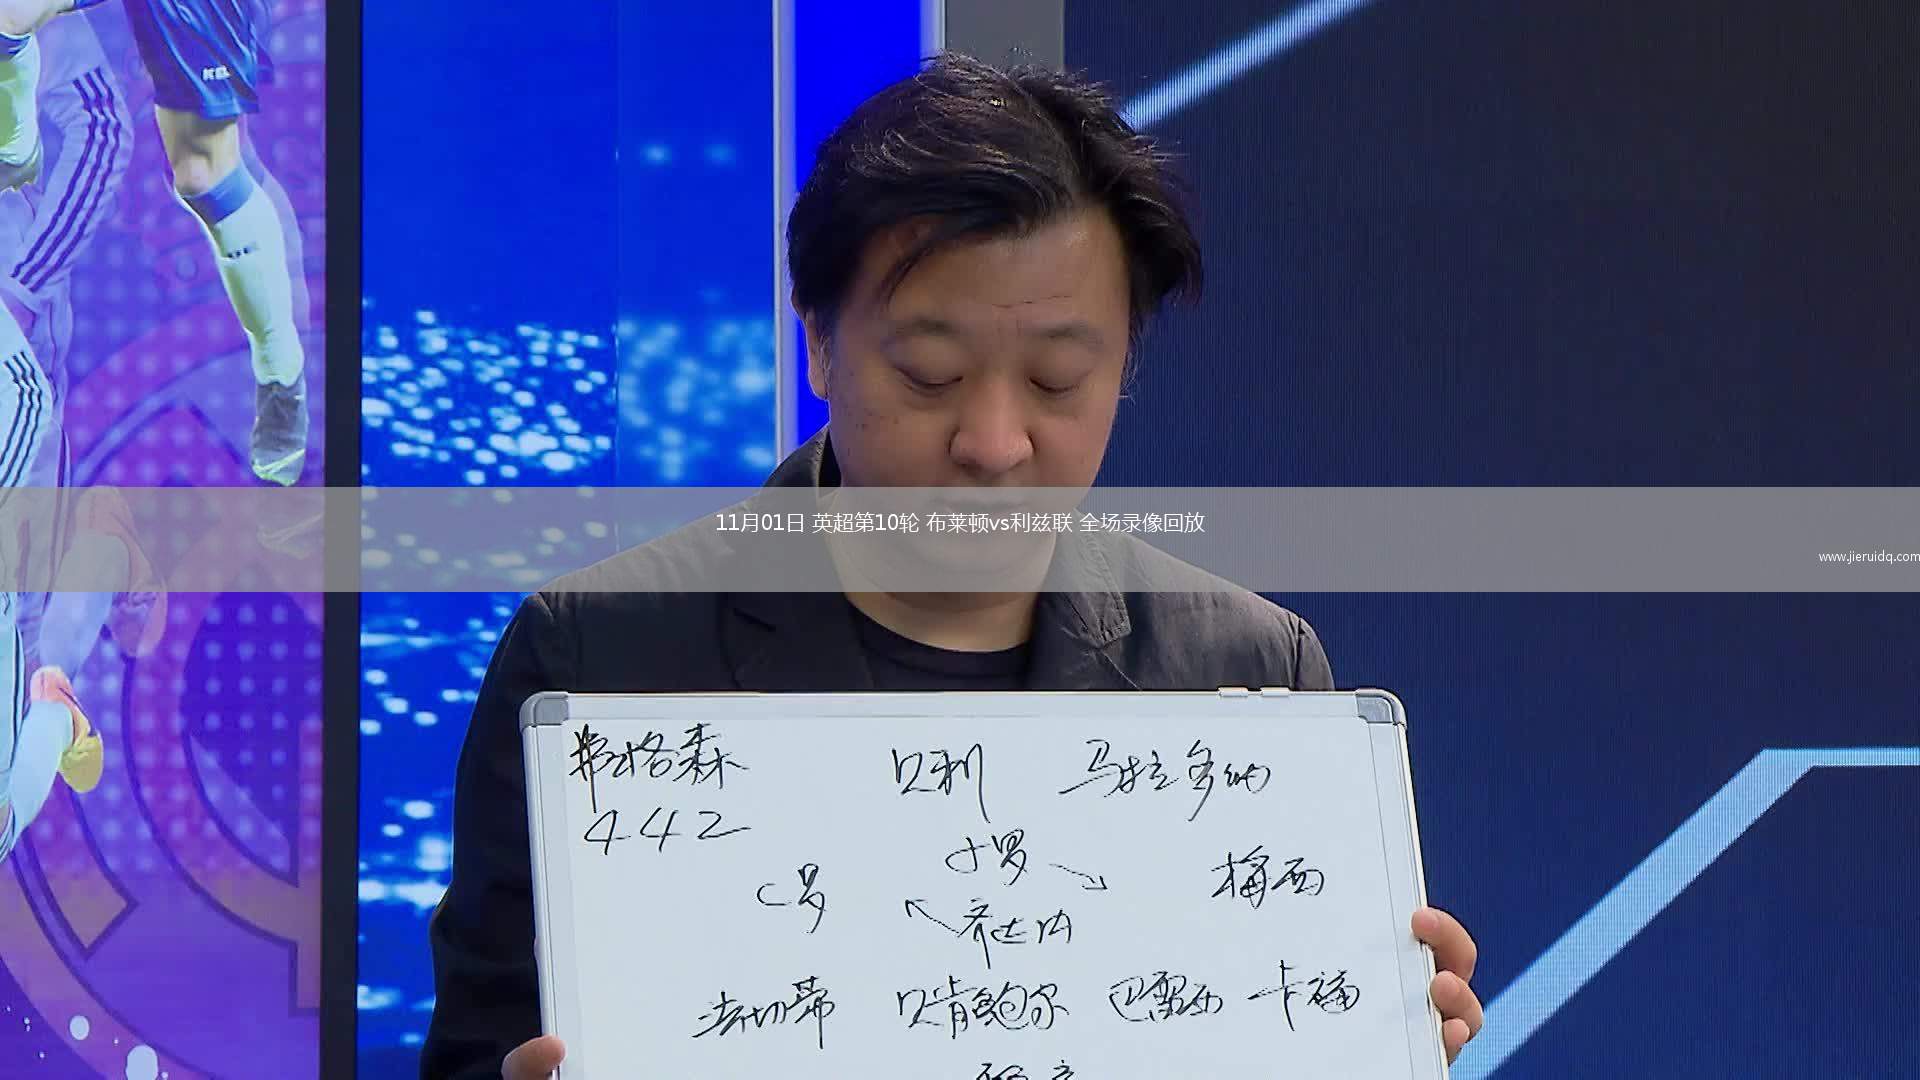 11月01日 英超第10轮 布莱顿vs利兹联 全场录像回放
www.jieruidq.com
弗格森 贝利 马拉多纳
442
小罗
C罗 梅西
齐达内
法切蒂 贝肯鲍尔 巴雷西 卡福